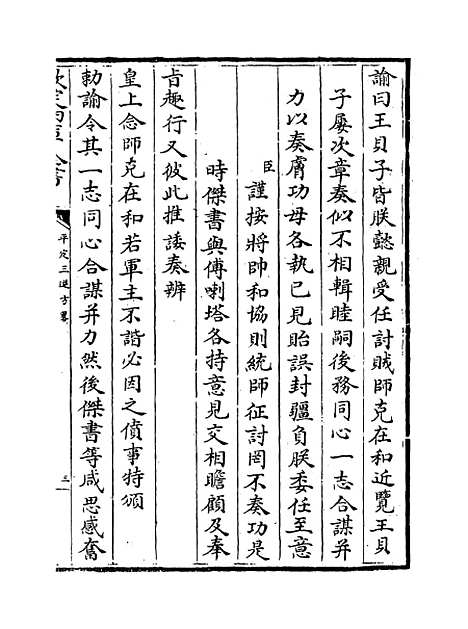 諭曰王貝子皆朕懿親受任討賊師克在和近覽王貝
子屢次章奏似不相輯睦嗣後務同心一志合謀并
力以奏膚功毋各執已見貽誤封疆負朕委任至意
臣謹按將帥和協則統師征討罔不奏功是
時傑書與傅喇塔各持意見交相瞻顧及奉
㫖趣行又彼此推諉奏辨
皇上念師克在和若軍主不諧必因之僨事特頒
勅諭令其一志同心合謀并力然後傑書等咸思感奮
欽定四庫全書
平定三逆方畧
三